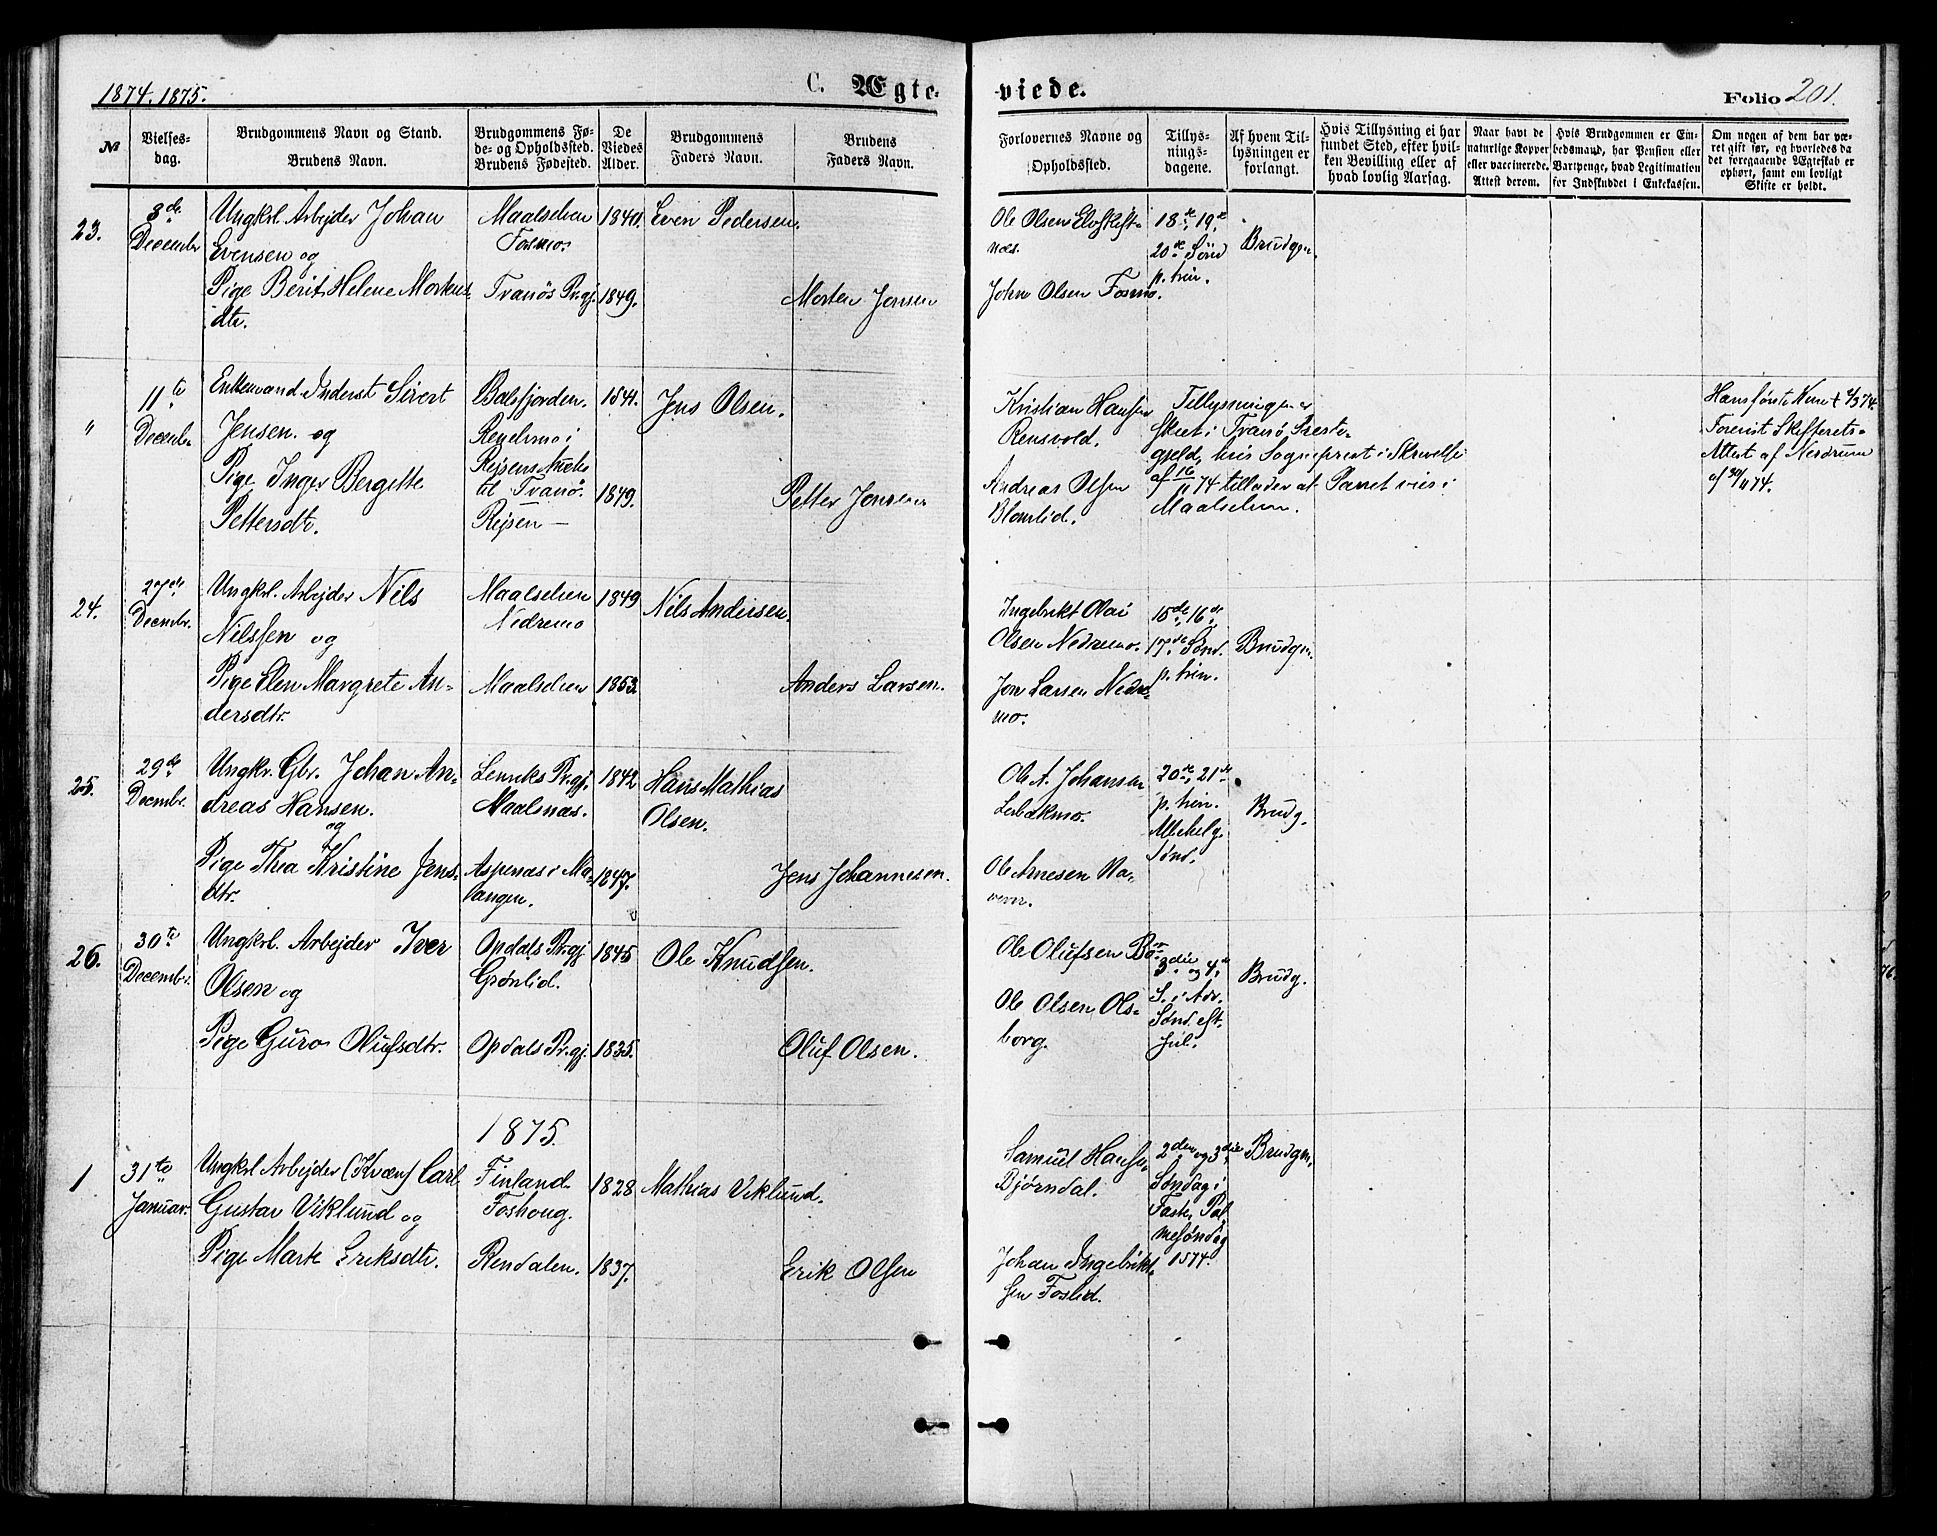 1874. 1875.
C. Ægte-
viede.
Folio 201.
№
Vielses-
dag.
Brudgommens Navn og Stand.
Brudens Navn.
Brudgommens Fø-
de- og Opholdssted.
Brudens Fødested.
De
Viedes
Alder.
Brudgommens
Faders Navn.
Brudens
Faders Navn.
Forlovernes Navne og
Opholdssted.
Tillys-
nings-
dagene.
Af hvem Til-
lysningen er
forlangt.
Hvis Tillysning ei har
fundet Sted, efter hvil-
ken Bevilling eller af
hvad lovlig Aarsag.
Naar havt de
naturlige Kopper
eller vaccinerede.
Attest derom.
Hvis Brudgommen er Em-
bedsmand, har Pension eller
Vartpenge, hvad Legitimation
for Indskuddet i Enkekassen.
Om nogen af dem har væ-
ret gift før, og hvorledes da
det foregaaende Ægteskab er
ophørt, samt om lovligt
Skifte er holdt.
23.
8de
December
Ungkrl. Arbejder Johan
Evensen og
Pige Berit Helene Mortens-
dtr.
Maalselven
Fosmo.
Tranøs Pr.gj.
1840.
1849.
Even Pedersen.
Morten Jonsen
Ole Olsen Elvskift-
næs.
John Olsen Fosmo.
18de, 19de
20de Sönd
p. trin.
Brudgm.
"
11te
Decembr
Enkemand Inderst Sivert
Jensen. og
Pige Inger Bergitte
Pettersdtr.
Balsfjorden.
Rendemo i
Rejsens Annex
til Tranö.
Rejsen —
1841.
1849.
Jens Olsen.
Petter Jonsen
Kristian Hansen
Rensvold.
Andreas Olsen
Blomlid.
Tillysningen er
skeet i Tranö Præste-
gjeld, hvis Sogneprest i Skrivelse
af 16/11 74 tillader at Parret vies i
Maalselven.
Hans første Kone †  /3 74.
Forevist Skifterets-
Attest af Nordrum
af 30/11 74.
24.
27de
Decembr.
Ungkrl. Arbejder Nils
Nilssen og
Pige Elen Margrete An-
dersdtr.
Maalselven
Nedremo
Maalselven
1849
1853.
Nils Andersen.
Anders Larsen.
Ingebrikt Olai
Olsen Nedremo.
Jon Larsen Nedre-
mo.
15de, 16de
17de Sönd.
p. trin.
Brudgm.
25.
29de
Decembr.
Ungkr. Gbr. Johan An-
dreas Hansen.
og
Pige Thea Kristine Jens-
dtr.
Lenviks Pr.gj.
Maalsnæs.
Aspenæs i Ma-
langen.
1842
1847.
Hans Mathias
Olsen.
Jens Johannesen.
Ole A. Johansen
Lerbakmo.
Ole Arnesen Na-
veren.
20de, 21de
p. trin.
Allehelg.
Sönd.
Brudg.
26.
30te
Decembr.
Ungkrl. Arbejder Iver
Olsen og
Pige Guro Olufsdtr.
Opdals Pr.gj.
Grønlid.
Opdals Pr.gj.
1845
1835.
Ole Knudsen.
Oluf Olsen.
Ole Olufsen Bo-
Ole Olsen Ols-
borg.
3die og 4de
S. i Adv.
Sönd. eft.
Jul.
Brudg.
1875.
1
31te
Januar.
Ungkrl Arbejder (Kvæn) Carl
Gustav Viklund og
Pige Marte Eriksdtr.
Finland
Foshoug.
Rendalen.
1828
1837.
Mathias Viklund.
Erik Olsen
Samuel Hansen
Djørndal.
Johan Ingebrikt-
sen Foslid.
2den og 3die
Søndag i
Faste, Pal
mesöndag
1874.
Brudgm.